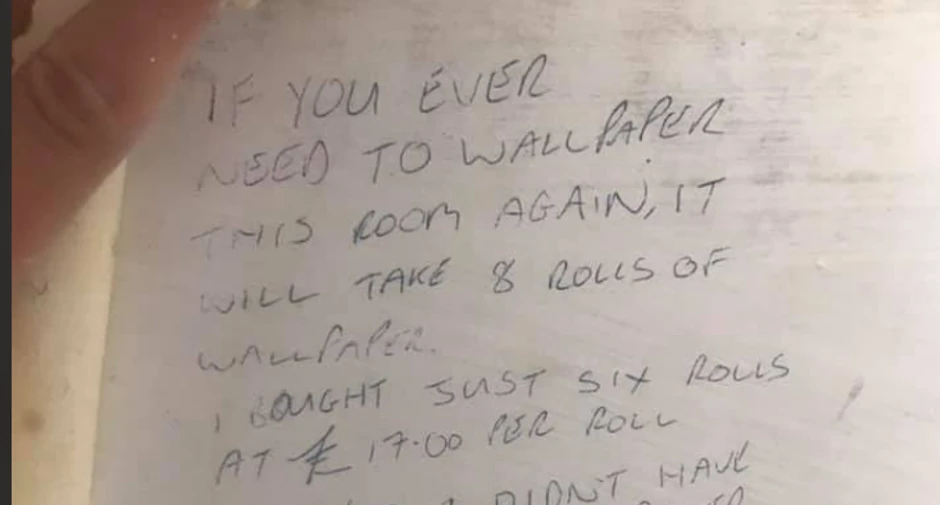 IF YOU EVER
NEED TO WALLPAPER
THIS ROOM AGAIN, IT
WILL TAKE 8 ROLLS OF
WALLPAPER.
I BOUGHT JUST SIX ROLLS
AT £17.00 PER ROLL
DIDN'T HAVE